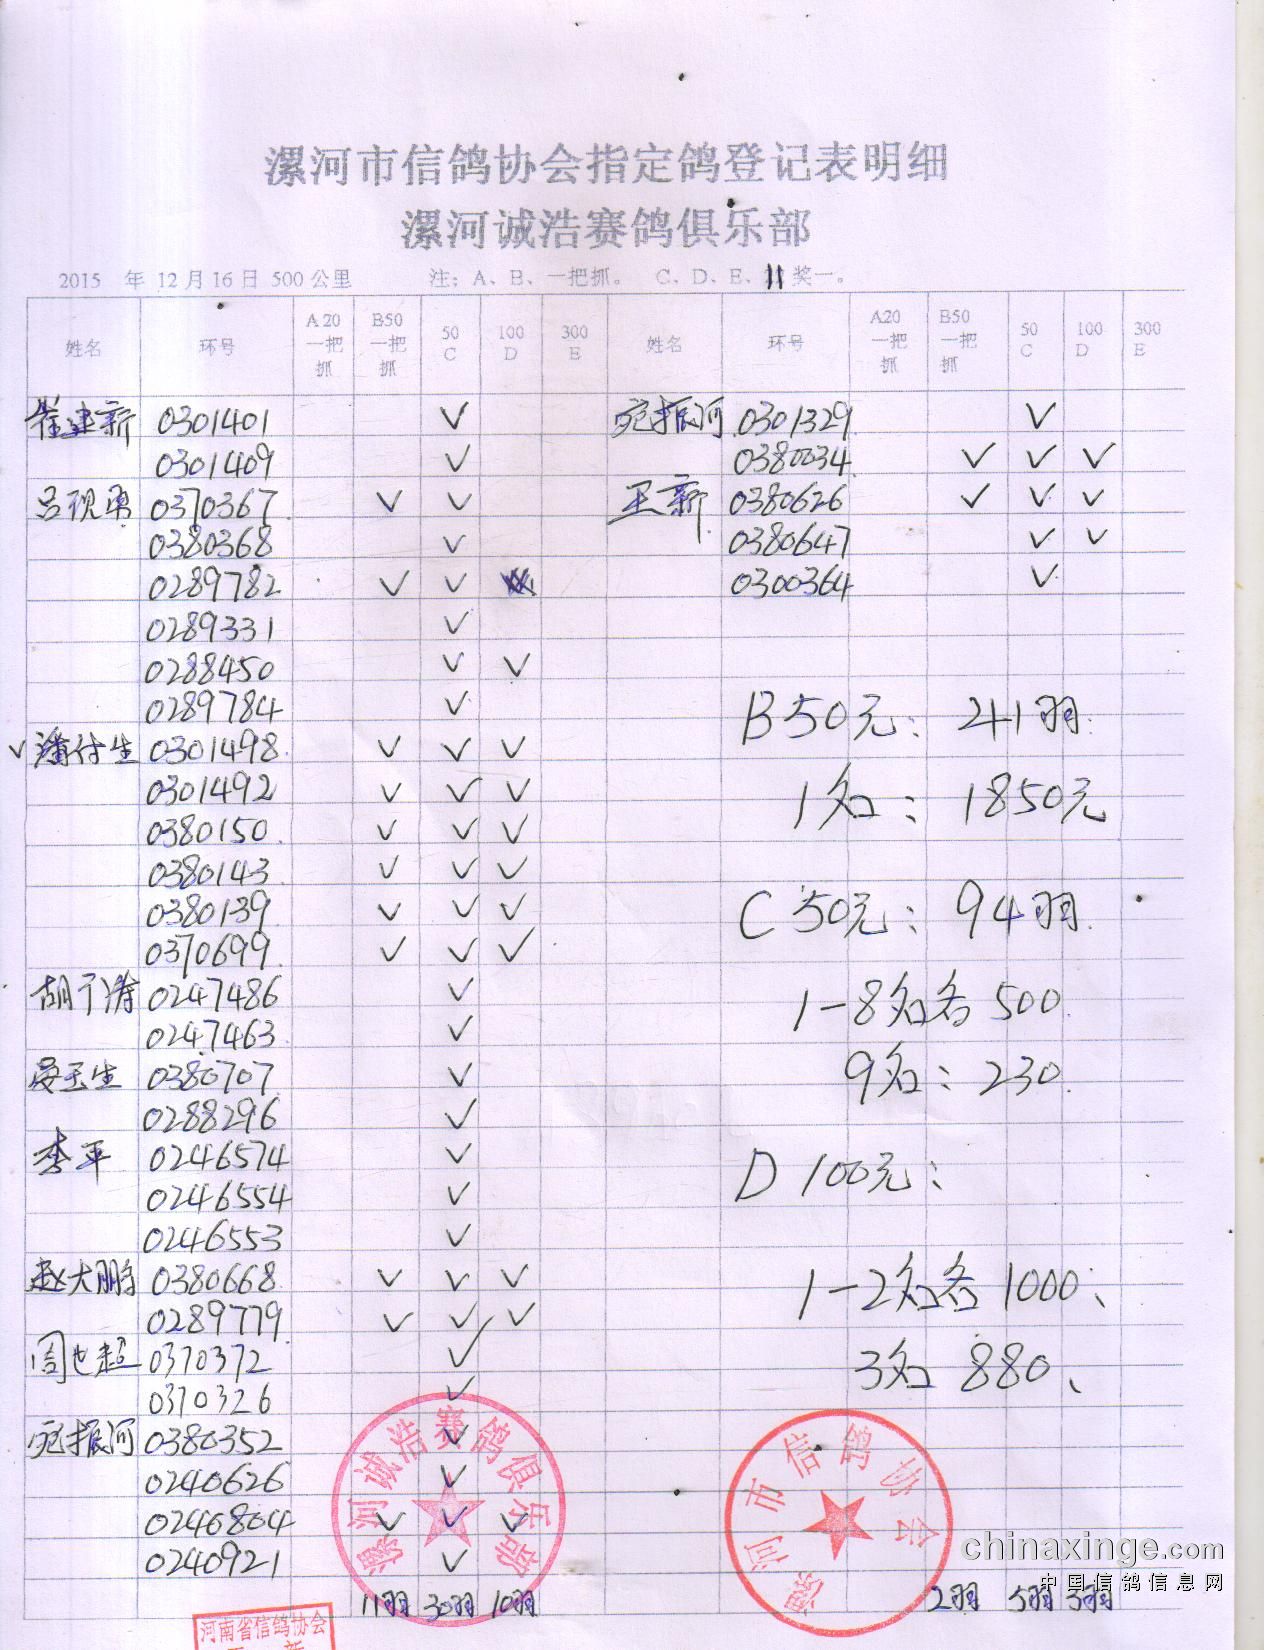 漯河市信鸽协会指定鸽登记表明细
漯河诚浩赛鸽俱乐部
2015 年 12月16日 500公里 注：A、B、一把抓。 C、D、E、11奖一。
姓名 环号 A20一把抓 B50一把抓 50 C 100 D 300 E 姓名 环号 A20一把抓 B50一把抓 50 C 100 D 300 E
崔建新 0301401 ✓ 宛振河 0301329 ✓
0301409 ✓ 0380034 ✓ ✓ ✓
吕现勇 0370367 ✓ ✓ 王新 0380626 ✓ ✓ ✓
0380368 ✓ 0380647 ✓ ✓
0289782 ✓ ✓ 0300364 ✓
0289331 ✓
0288450 ✓ ✓
0289784 ✓ B50元：41羽
✓潘付生 0301498 ✓ ✓ ✓
0301492 ✓ ✓ ✓ 1名：1850元
0380150 ✓ ✓ ✓
0380143 ✓ ✓ ✓
0380139 ✓ ✓ ✓ C50元：94羽
0370699 ✓ ✓ ✓
胡于涛 0247486 ✓ 1-8名各500
0247463 ✓
晏玉生 0380707 ✓ 9名：230
0288296 ✓
李平 0246574 ✓ D100元：
0246554 ✓
0246553 ✓
赵大鹏 0380668 ✓ ✓ ✓ 1-2名各1000、
0289779 ✓ ✓ ✓
周也超 0370372 ✓ 3名 880、
0370326 ✓
宛振河 0380352 ✓
0240626 ✓
0246804 ✓ ✓ ✓
0240921 ✓
11羽 30羽 10羽 2羽 5羽 3羽
漯河诚浩赛鸽俱乐部
漯河市信鸽协会
chinaxinge.com
中国信鸽信息网
河南省信鸽协会